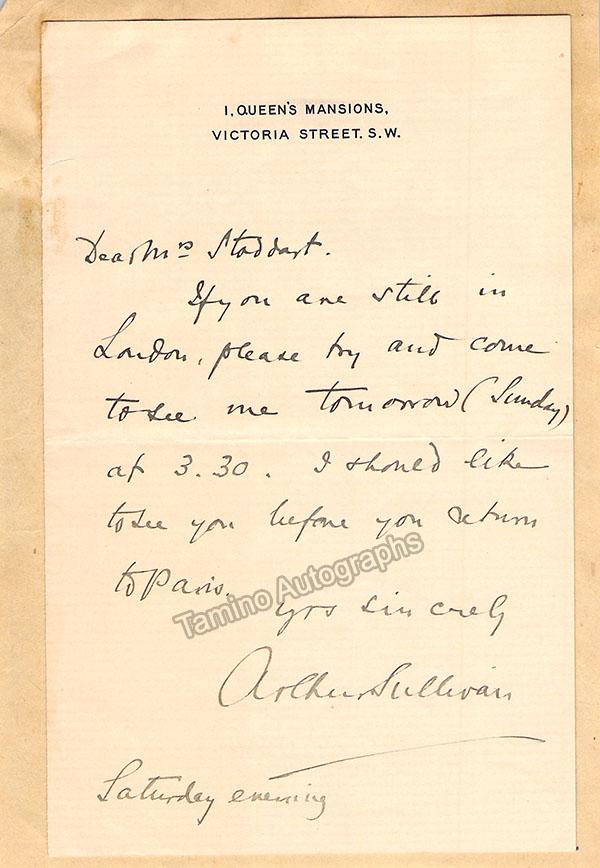 1, QUEEN'S MANSIONS,
VICTORIA STREET. S.W.
Dear Mrs Stoddart.
If you are still in
London, please try and come
to see me tomorrow (Sunday)
at 3.30. I should like
to see you before you return
to Paris.
Tamino Autographs
Yrs sincerely
Arthur Sullivan
Saturday evening